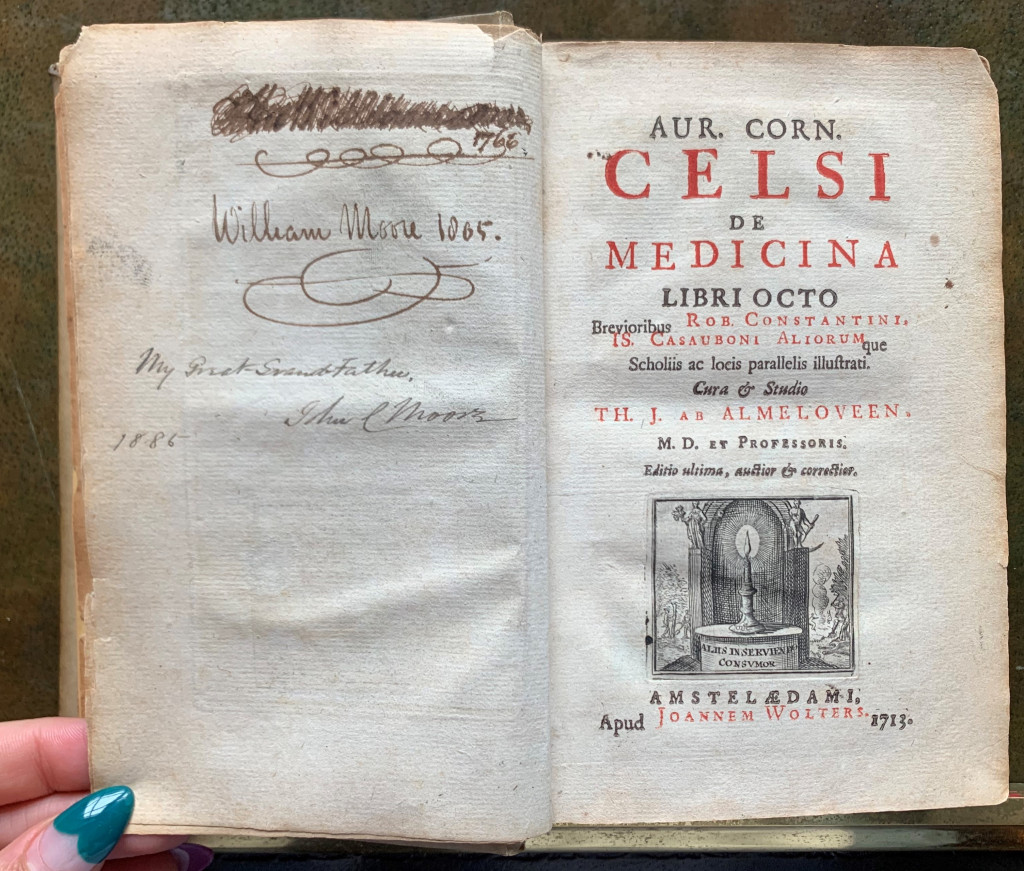 1766.
William Moore 1805.
My Great Grandfather,
John C Moore
1885
AUR. CORN.
CELSI
DE
MEDICINA
LIBRI OCTO
Brevioribus ROB. CONSTANTINI,
IS. CASAUBONI ALIORUM
que
Scholiis ac locis parallelis illuſtrati.
Cura & Studio
TH. J. AB ALMELOVEEN,
M. D. ET PROFESSORIS.
Editio ultima, auctior & correctior.
ALIIS IN SERVIENDO
CONSVMOR
AMSTELÆDAMI,
Apud JOANNEM WOLTERS. 1713.